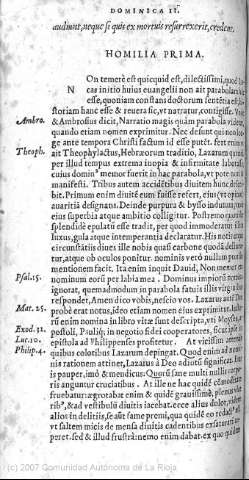 DOMINICA II.
audiunt, neque si quis ex mortuis resurrexerit, credent.
HOMILIA PRIMA.
NOn temerè est quicquid est, dilectissimi, quod Lu
cas initio huius euangelii non ait parabolam
esse, quoniam constans doctorum sententia est, hi
storiam hanc esse & reuera sic, vt narratur, contigisse.
Ambro.
& Ambrosius dicit, Narratio magis quàm parabola videtur
quando etiam nomen exprimitur. Nec desunt qui non lon
ge ante tempora Christi factum id esse putēt. fert enim
Theoph.
ait Theophylactus, Hebræorum traditio, Lazarum quend
per illud tempus extrema inopia & infirmitate laborasse
cuius dominus memor fuerit in hac parabola, vt pote noti
manifesti. Tribus autem accidētibus diuitem hunc descri
bit. Primum enim diuitē eum fuisse refert, eius
auaritiā designans. Deinde purpura & bysso indutum
eius superbia atque ambitio colligitur. Postremo quòd
splendidè epulari esse tradit, per quod immoderati
luxus, gula atque intemperantia declaratur. His notis
circunstātiis diues ille nobis quasi carbone quodā
tur, atque ob oculos ponitur. nominis verò nullum
mentionem facit. Ita enim inquit Dauid, Non memor ero
Psal.15.
nominum eorū per labia mea. Dominus improbis
ignorat, quemadmodum in parabola fatuis illis virginibus
Mat. 25.
respondet, Amen dico vobis, nescio vos. Lazarus autē Deo
probè erat notus, ideo etiam nomen eius exprimitur.
Exod. 32.
rū enim nomina in libro vitæ sunt descripta, vti Moses,
Luc. 10.
postoli, Pauliq; in negotio fidei cooperatores, sicut
Philip. 4.
epistola ad Philippenses profitetur. At vicissim
quibus coloribus Lazarum depingat. Quod enim ad
nis rationem attinet, Lazarus à Deo adiutū significat.
is pauper, imò & mendicus: Quorū sanè multi
ris anguntur cruciatibus. At ille ne hac quidē
fruebatur: ægrotabat enim & quidē grauissimè, plenus
ribus, & ad vestibulū diuitis iacebat. ecce alius dolor,
alios in deliciis, se aūt fame premi, qua quidē eò redact
vt saltem micis de mensa diuitis cadentibus exsaturari
peret. sed & illud frustra: nemo enim dabat. ex quo quidem
(c) 2007 Comunidad Autónoma de La Rioja